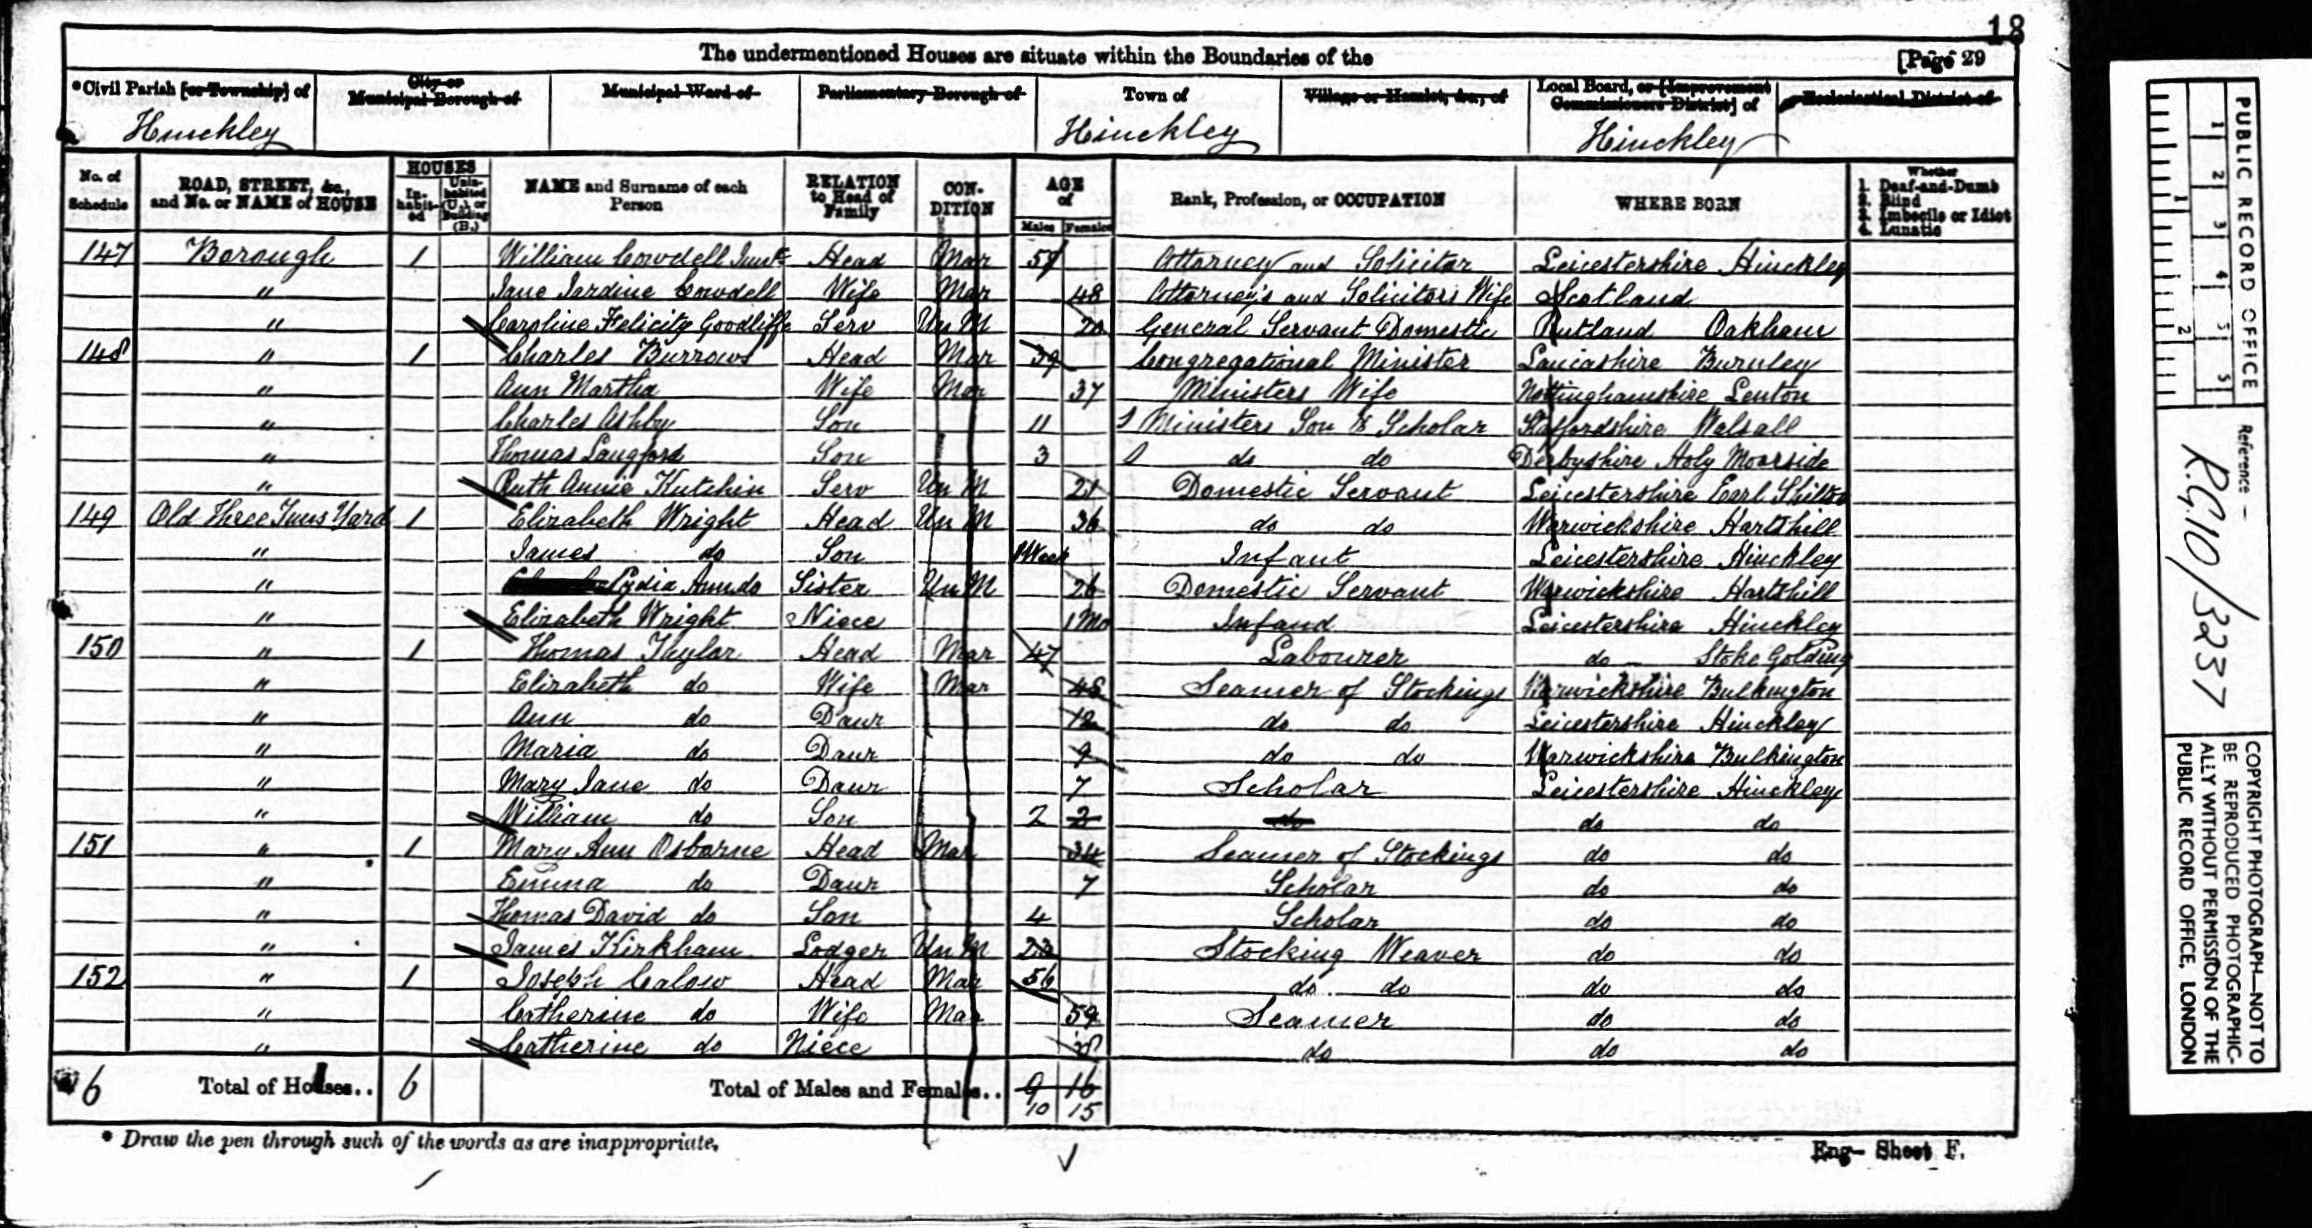 18
The undermentioned Houses are situate within the Boundaries of the [Page 29
*Civil Parish [or Township] of City or Municipal Borough of Municipal Ward of Parliamentary Borough of Town of Village or Hamlet, &c., of Local Board, or [Improvement Commissioners District] of Ecclesiastical District of
Hinckley Hinckley Hinckley
No. of Schedule ROAD, STREET, &c., and No. or NAME of HOUSE HOUSES In-habit-ed Unin-habited (U.) or Building (B.) NAME and Surname of each Person RELATION to Head of Family CON-DITION AGE of Males Females Rank, Profession, or OCCUPATION WHERE BORN Whether 1. Deaf-and-Dumb 2. Blind 3. Imbecile or Idiot 4. Lunatic
147 Borough 1 William Cowdell Head Mar Attorney and Solicitor Leicestershire Hinckley
" Jane Jardine Cowdell Wife Mar 48 Attorney's and Solicitors Wife Scotland
" Caroline Felicity Goodliffe Serv Un M 20 General Servant Domestic Rutland Oakham
148 " 1 Charles Burrows Head Mar 39 Congregational Minister Lancashire Burnley
" Ann Martha Wife Mar 37 Ministers Wife Nottinghamshire Lenton
" Charles Ashby Son 11 Ministers Son & Scholar Staffordshire Walsall
" Thomas Langford Son 3 do do Derbyshire Holy Moorside
" Ruth Annie Hutchin Serv Un M 21 Domestic Servant Leicestershire Earl Shilton
149 Old Three Tuns Yard 1 Elizabeth Wright Head Un M 36 do do Warwickshire Hartshill
" James do Son 1 Week Infant Leicestershire Hinckley
" Lydia Ann do Sister Un M 26 Domestic Servant Warwickshire Hartshill
" Elizabeth Wright Niece 1 Mo Infand Leicestershire Hinckley
150 " 1 Thomas Thylar Head Mar 47 Labourer do Stoke Golding
" Elizabeth do Wife Mar 45 Seamer of Stockings Warwickshire Bulkington
" Ann do Daur 12 do do Leicestershire Hinckley
" Maria do Daur 9 do do Warwickshire Bulkington
" Mary Jane do Daur 7 Scholar Leicestershire Hinckley
" William do Son 2 2 do do do
151 " 1 Mary Ann Osborne Head Mar 34 Seamer of Stockings do do
" Emma do Daur 7 Scholar do do
" Thomas David do Son 4 Scholar do do
" James Kirkham Lodger Un M 23 Stocking Weaver do do
152 " 1 Joseph Calow Head Mar 56 do do do do
" Catherine do Wife Mar 59 Seamer do do
" Catherine do Niece do do do
6 Total of Houses.. 6 Total of Males and Females.. 9 16
10 15
* Draw the pen through such of the words as are inappropriate.
Eng- Sheet F.
PUBLIC RECORD OFFICE
1 2 3 4 5
1 2
Reference:-
R.G.10/3237
COPYRIGHT PHOTOGRAPH—NOT TO
BE REPRODUCED PHOTOGRAPHIC-
ALLY WITHOUT PERMISSION OF THE
PUBLIC RECORD OFFICE, LONDON